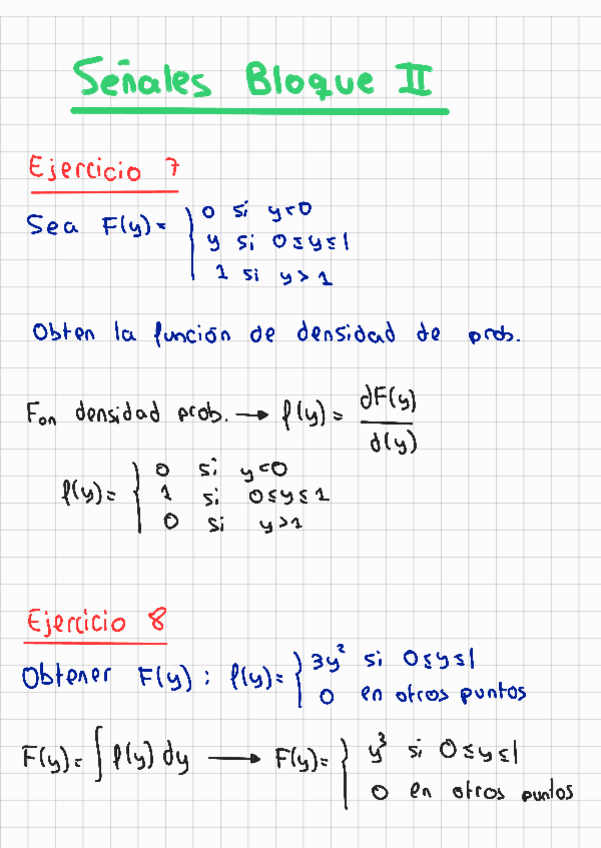 Señales Bloque II
Ejercicio 7
Sea F(y) = { 0 si y<0
y si 0≤y≤1
1 si y>1
Obten la función de densidad de prob.
Fon densidad prob. → f(y) = dF(y)/d(y)
f(y) = { 0 si y<0
1 si 0≤y≤1
0 si y>1
Ejercicio 8
Obtener F(y): f(y) = { 3y² si 0≤y≤1
0 en otros puntos
F(y) = ∫ f(y) dy → F(y) = { y³ si 0≤y≤1
0 en otros puntos